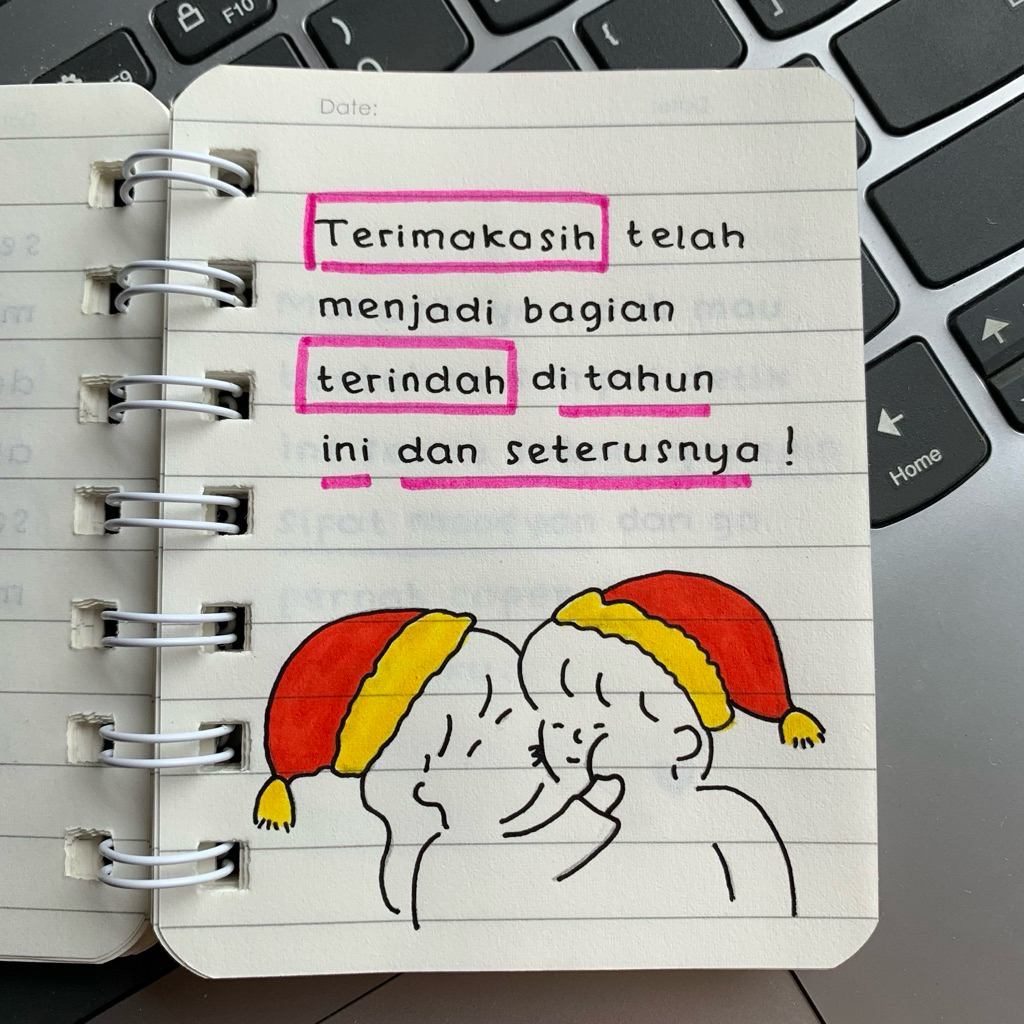 F10
F9
)
{
Date:
Terimakasih telah
menjadi bagian
terindah di tahun
ini dan seterusnya !
Home